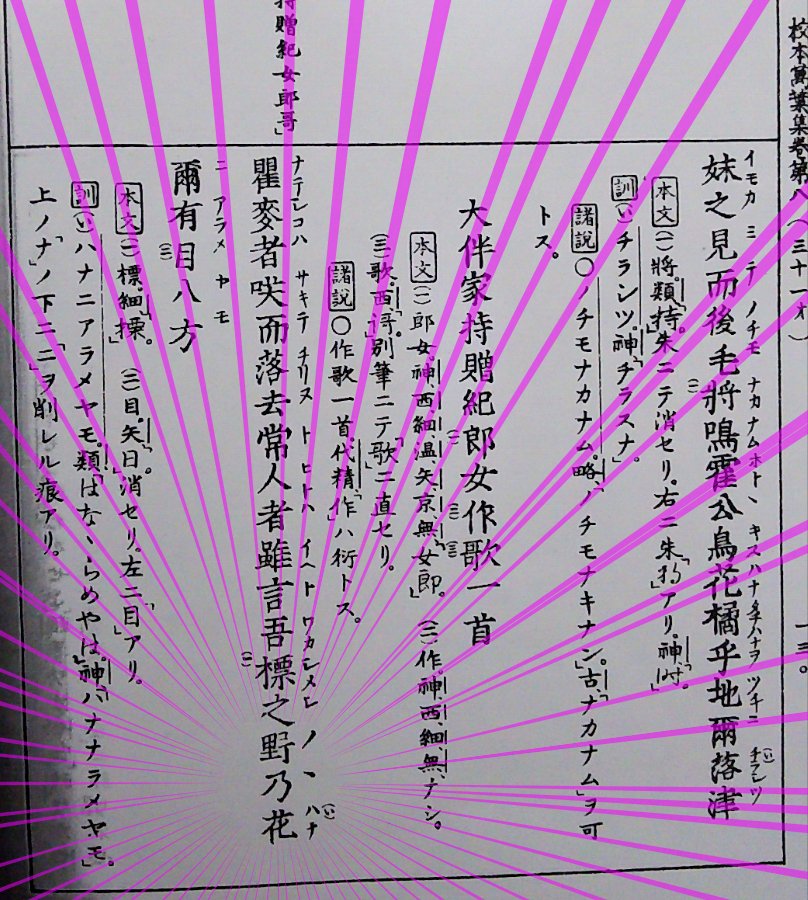 校本萬葉集卷第八(三十一オ)
一三〇
持贈紀女郎哥」
イモカ ミ テ ノチモ ナカナムホトヽ キスハナタチハナヲ ツチニ チラシツ
妹之見而後毛將鳴霍公鳥花橘乎地爾落津
本文(一)將。類「持」。朱ニテ消セリ。右ニ朱「
訓(い)チラシツ。神「チラスナ」。
諸説〇ノチモナカナム。略「ノチモナキナン」。古「ナカナム」ヲ可
トス。
大伴家持贈紀郎女作歌一首
本文(一)郎女。神、西、細、温、矢、京、無「女郎」。 (二)作。神、西、細、無、ナシ。
(三)歌。西「哥」。別筆ニテ「歌」ニ直セリ。
諸説〇作歌一首。代精「作」ハ衍トス。
ナテシコハ サキテ チリヌ ト ヒトハ イヘト ワカシメシ ノ ヽ ハナ
瞿麥者咲而落去常人者雖言吾標之野乃花
ニ アラメ ヤ モ
爾有目八方
本文(一)標。細「 」。 (二)目。矢「日」消セリ。左ニ「目」アリ。
訓(い)ハナニアラメヤモ。類「はなゝらめやは」。神「ハナナラメヤモ」。
上ノ「ナ」ノ下ニ「ニ」ヲ削レル痕アリ。